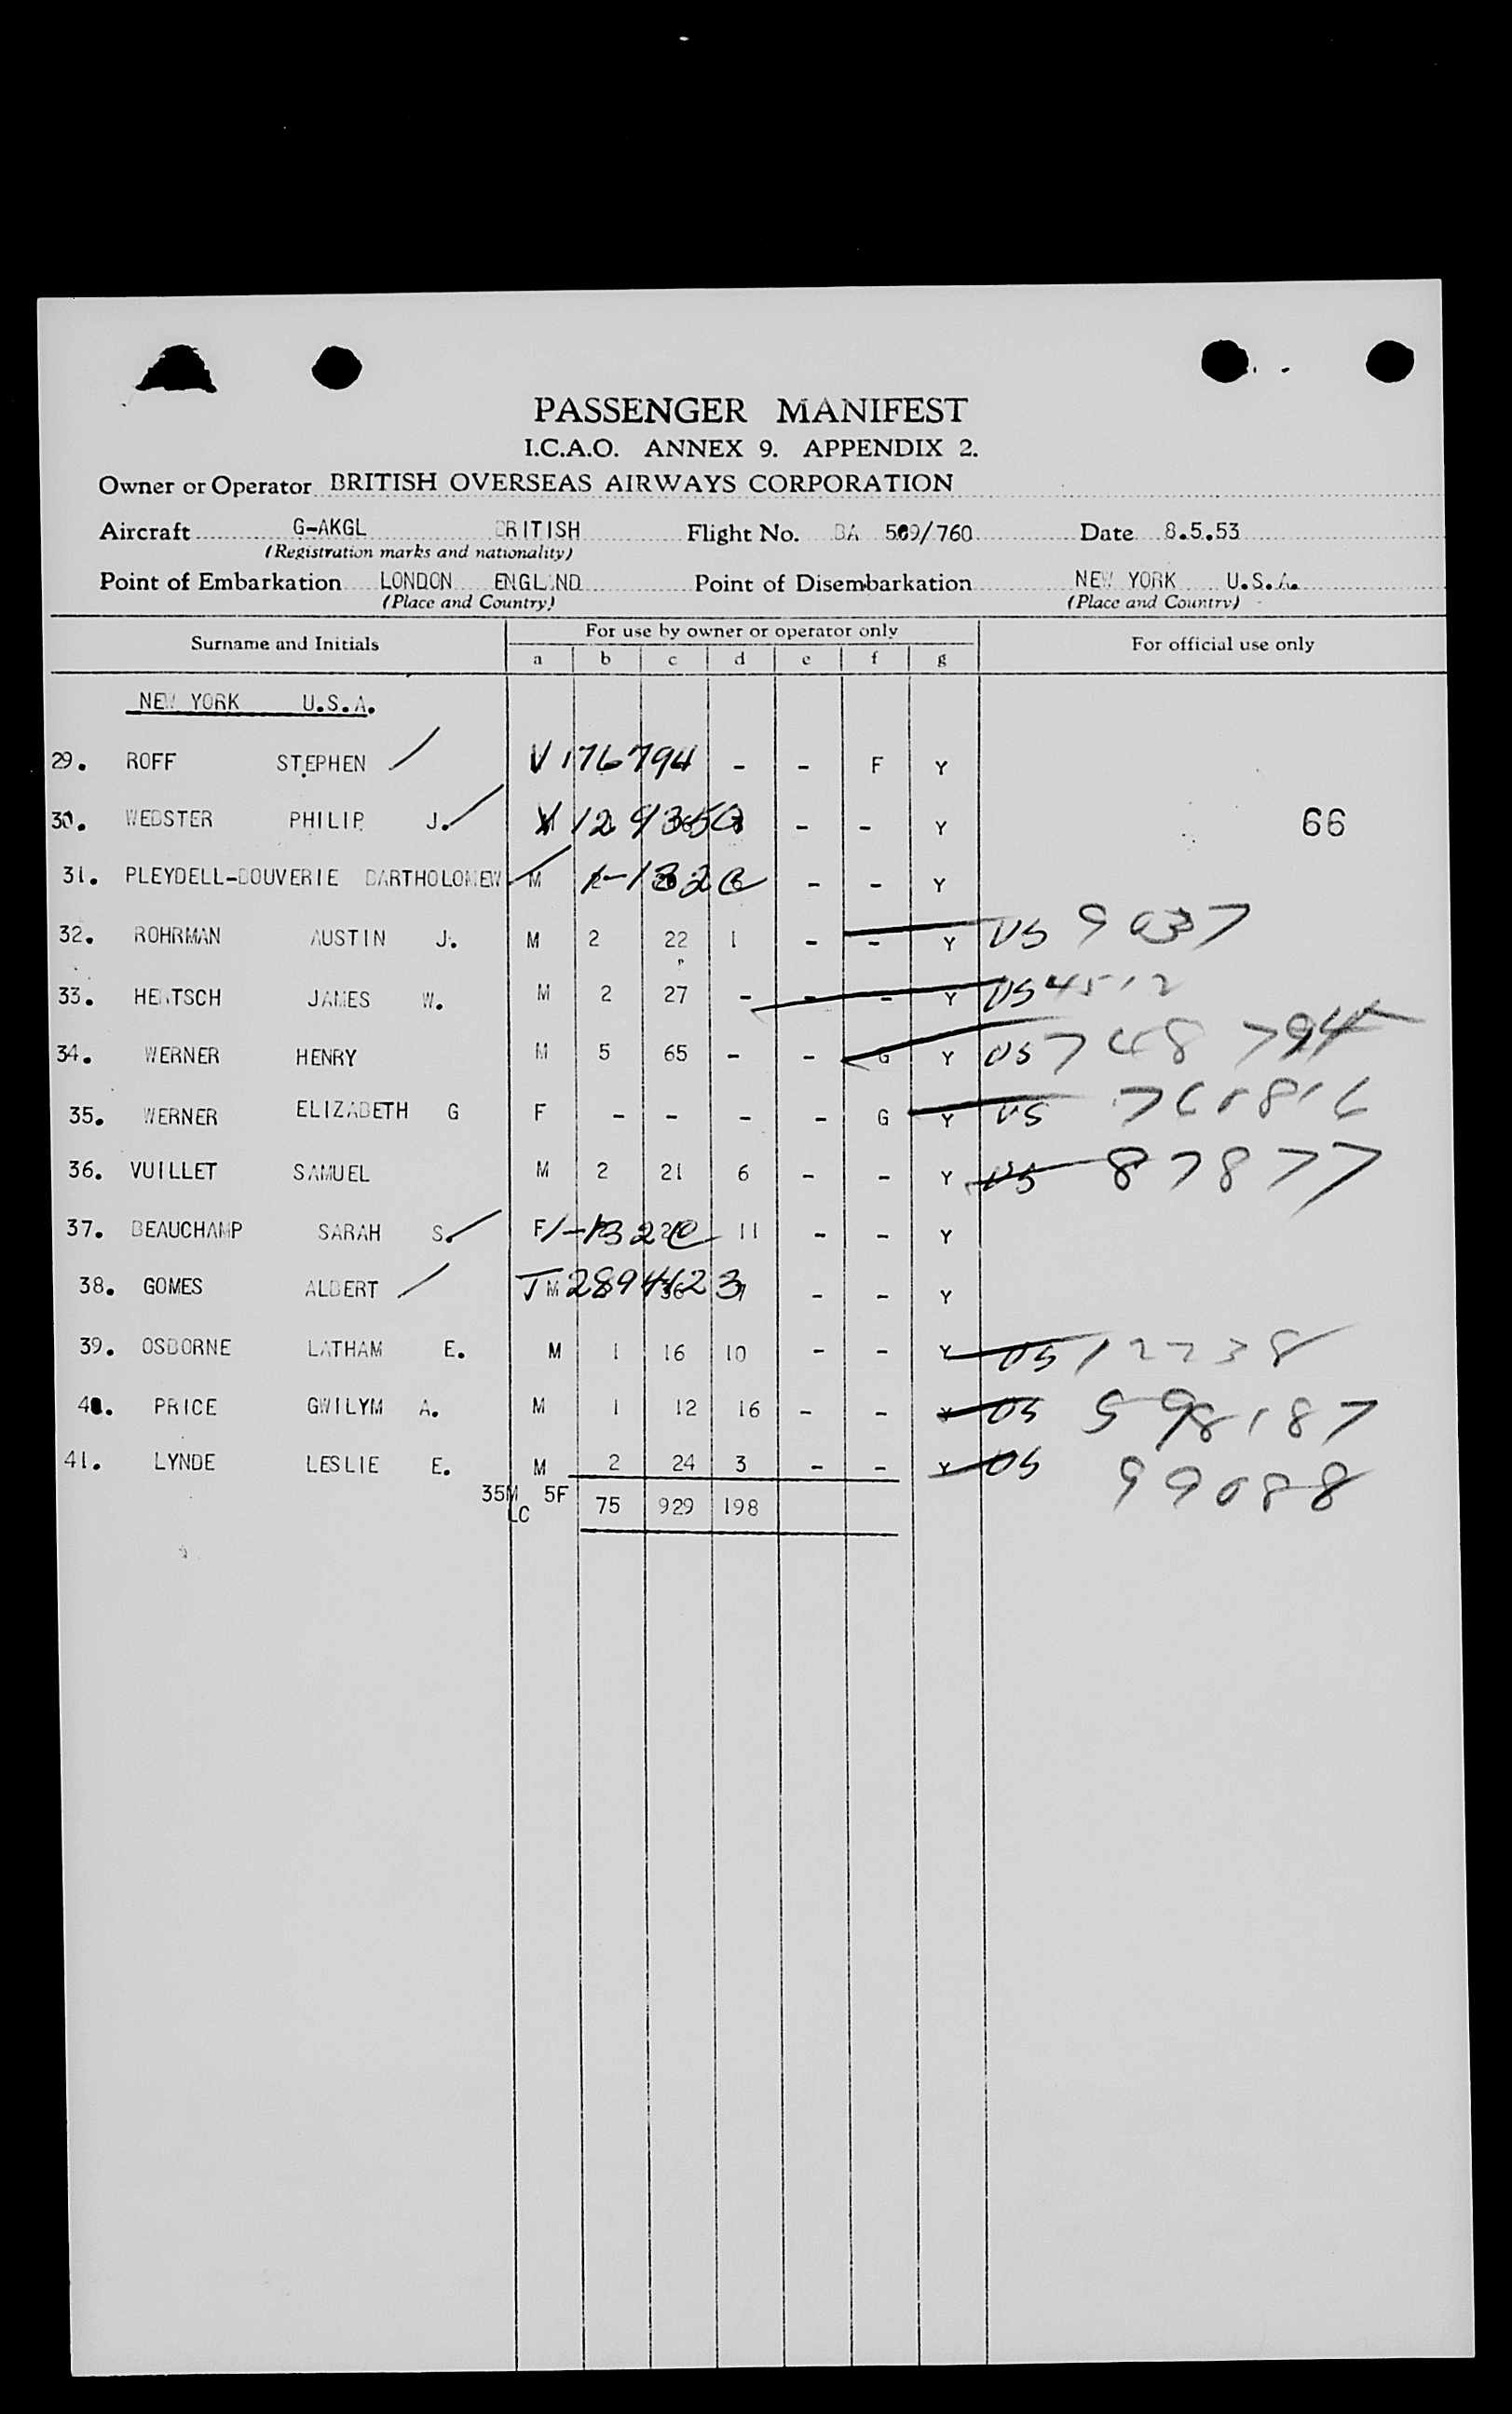 PASSENGER MANIFEST
I.C.A.O. ANNEX 9. APPENDIX 2.
Owner or Operator BRITISH OVERSEAS AIRWAYS CORPORATION
Aircraft G-AKGL BRITISH Flight No. BA 509/760 Date 8.5.53
(Registration marks and nationality)
Point of Embarkation LONDON ENGLAND Point of Disembarkation NEW YORK U.S.A.
(Place and Country) (Place and Country)
Surname and Initials For use by owner or operator only For official use only
a b c d e f g
NEW YORK U.S.A.
29. ROFF STEPHEN V 176794 - - F Y
30. WEBSTER PHILIP J. - - Y 66
31. PLEYDELL-BOUVERIE BARTHOLOMEW M - - Y
32. ROHRMAN AUSTIN J. M 2 22 1 - - Y US 9037
33. HENTSCH JAMES W. M 2 27 - - - Y US 4512
34. WERNER HENRY M 5 65 - - G Y US 748794
35. WERNER ELIZABETH G F - - - - G Y US
36. VUILLET SAMUEL M 2 21 6 - - Y US 87877
37. BEAUCHAMP SARAH S. F 11 - - Y
38. GOMES ALBERT M - - Y
39. OSBORNE LATHAM E. M 1 16 10 - - Y US 12238
40. PRICE GWILYM A. M 1 12 16 - - Y US 598187
41. LYNDE LESLIE E. M 2 24 3 - - Y US 99088
35M 5F 75 929 198